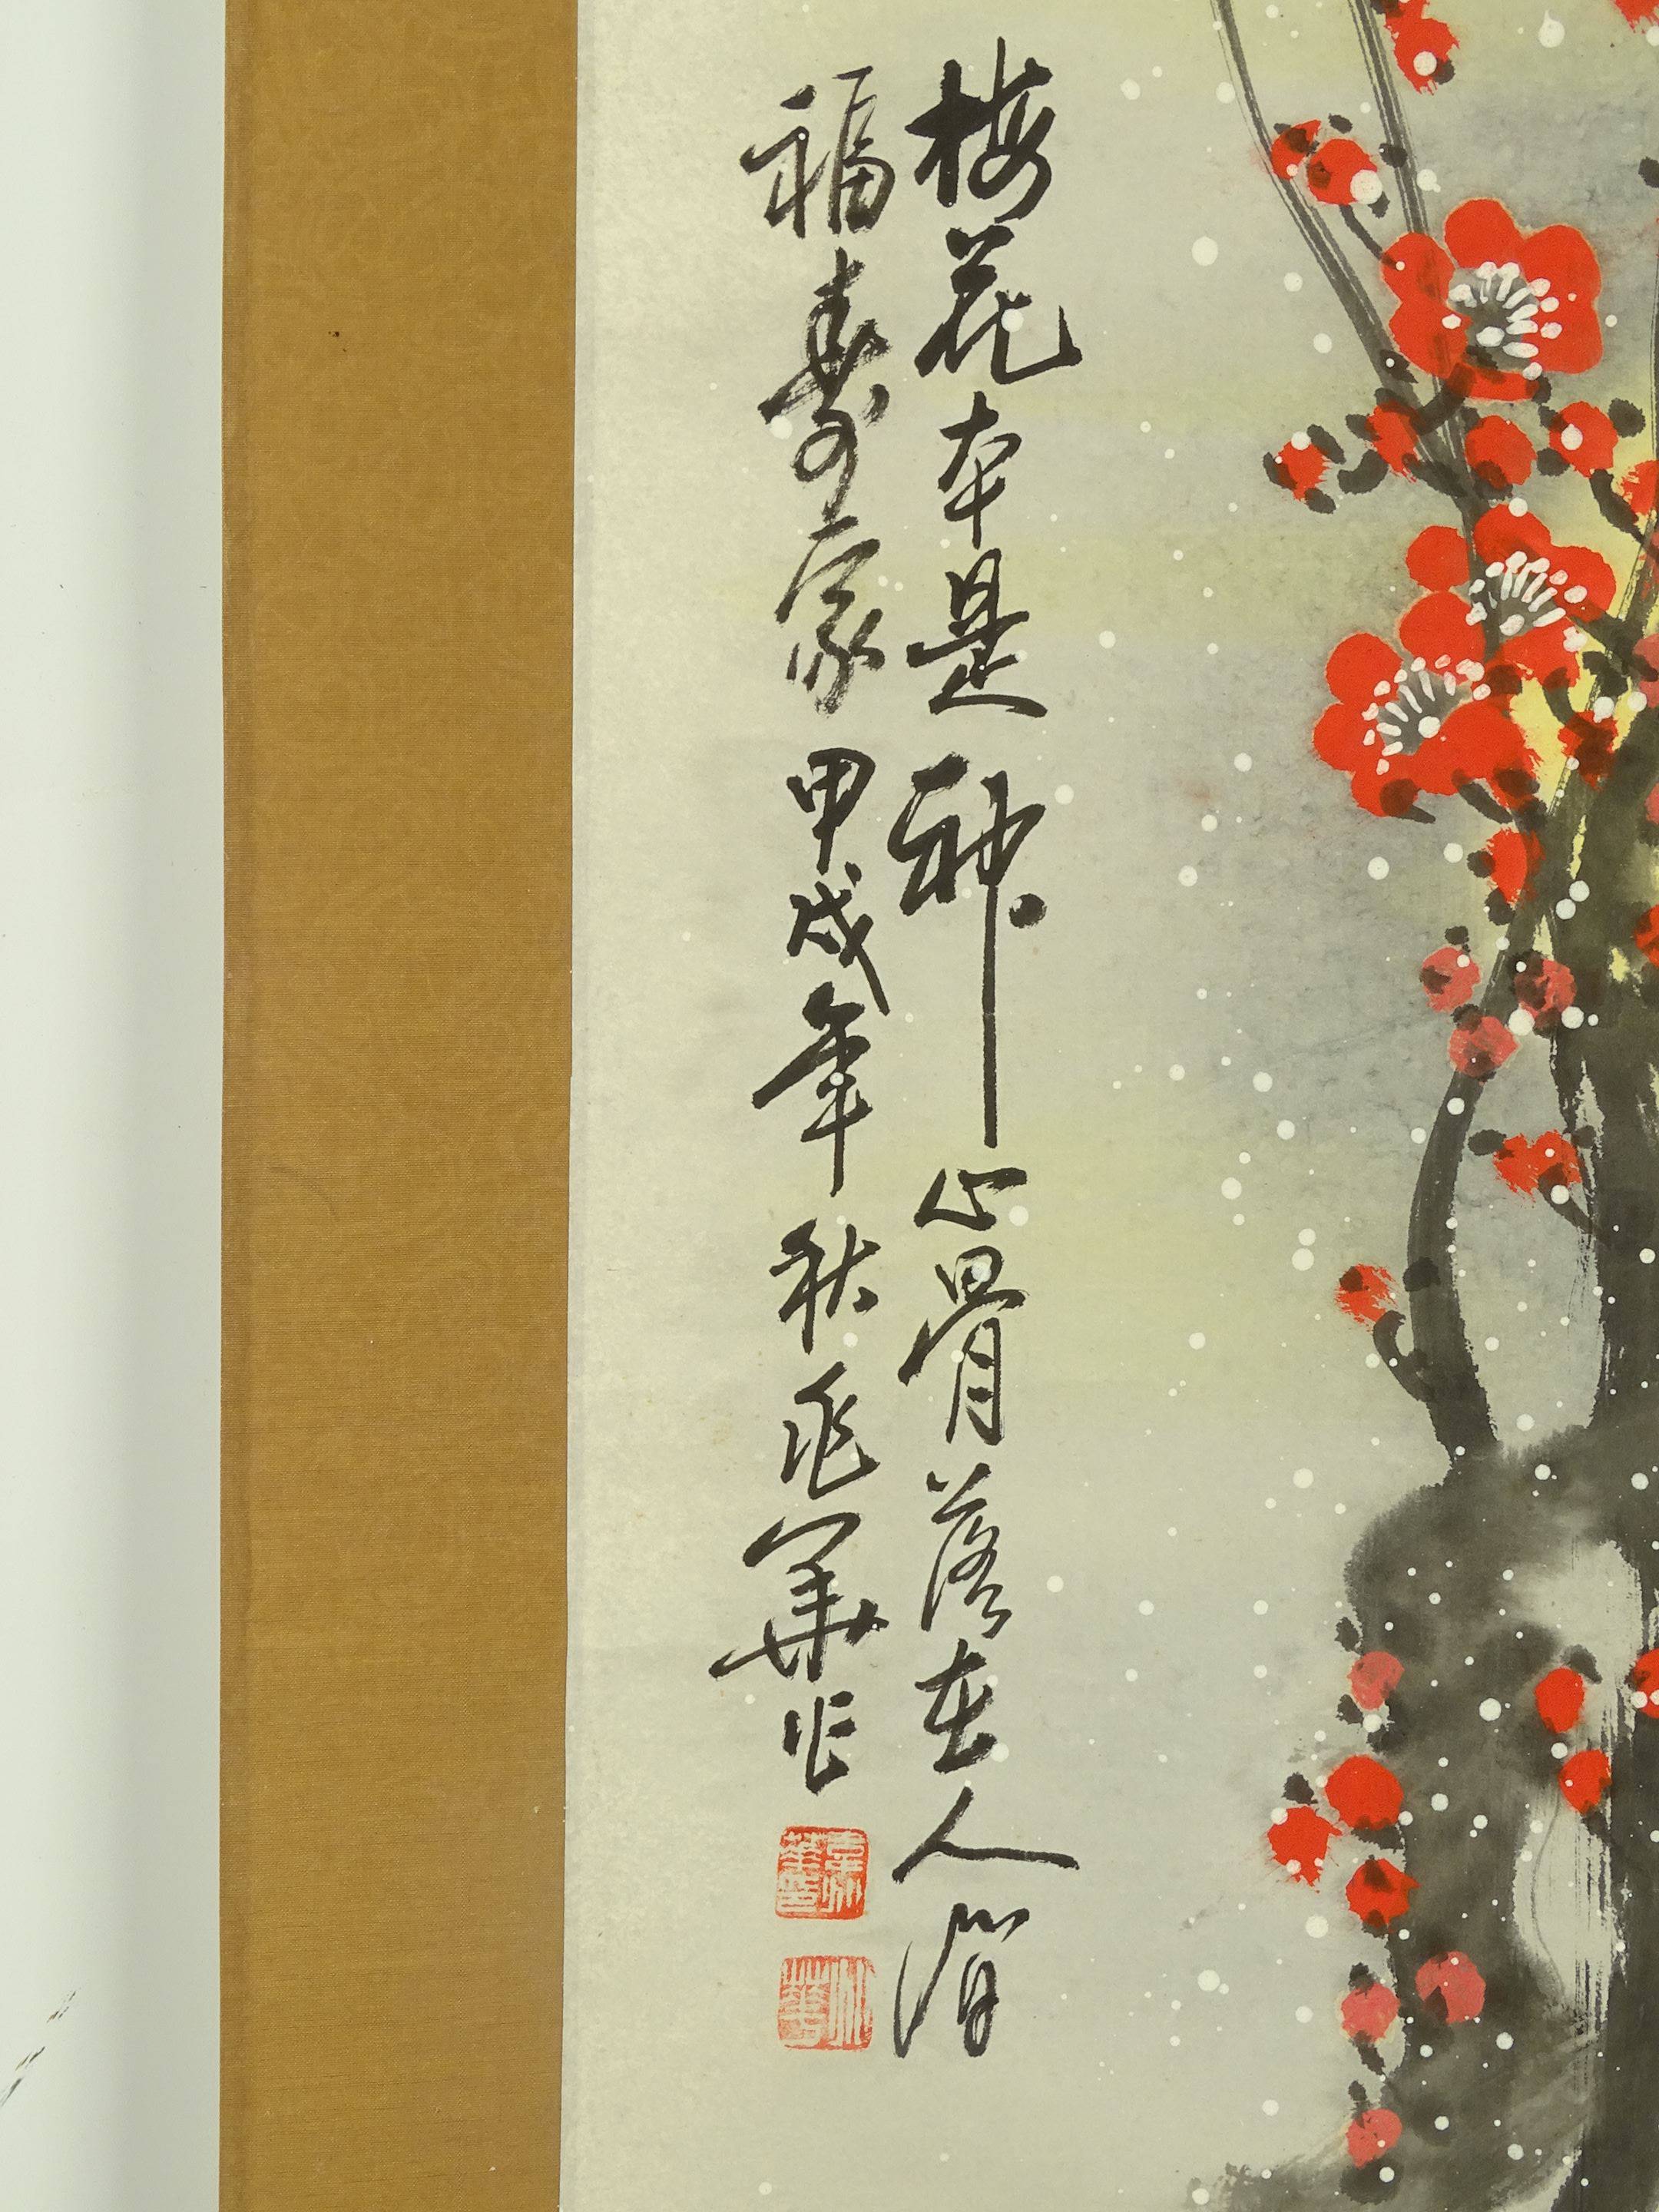 梅花本是神仙骨落在人間
福壽家 甲戌年秋 兆華作